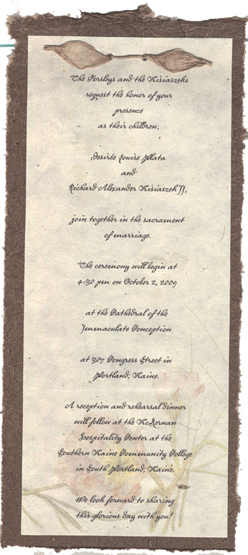 The Porsbys and the Kisiaszeks
request the honor of your
presence
as their children,
Desirée Louise Plata
and
Richard Alexander Kisiaszek II,
join together in the sacrament
of marriage.
The ceremony will begin at
4:30 pm on October 2, 2009
at the Cathedral of the
Immaculate Conception
at 307 Congress Street in
Portland, Maine.
A reception and rehearsal dinner
will follow at the McKernan
Hospitality Center at the
Southern Maine Community College
in South Portland, Maine.
We look forward to sharing
this glorious day with you!